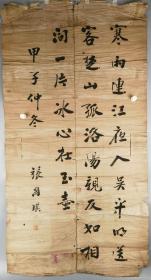 寒雨連江夜入吳平明送
客楚山孤洛陽親友如相
問一片冰心在玉壺
甲子仲冬
張